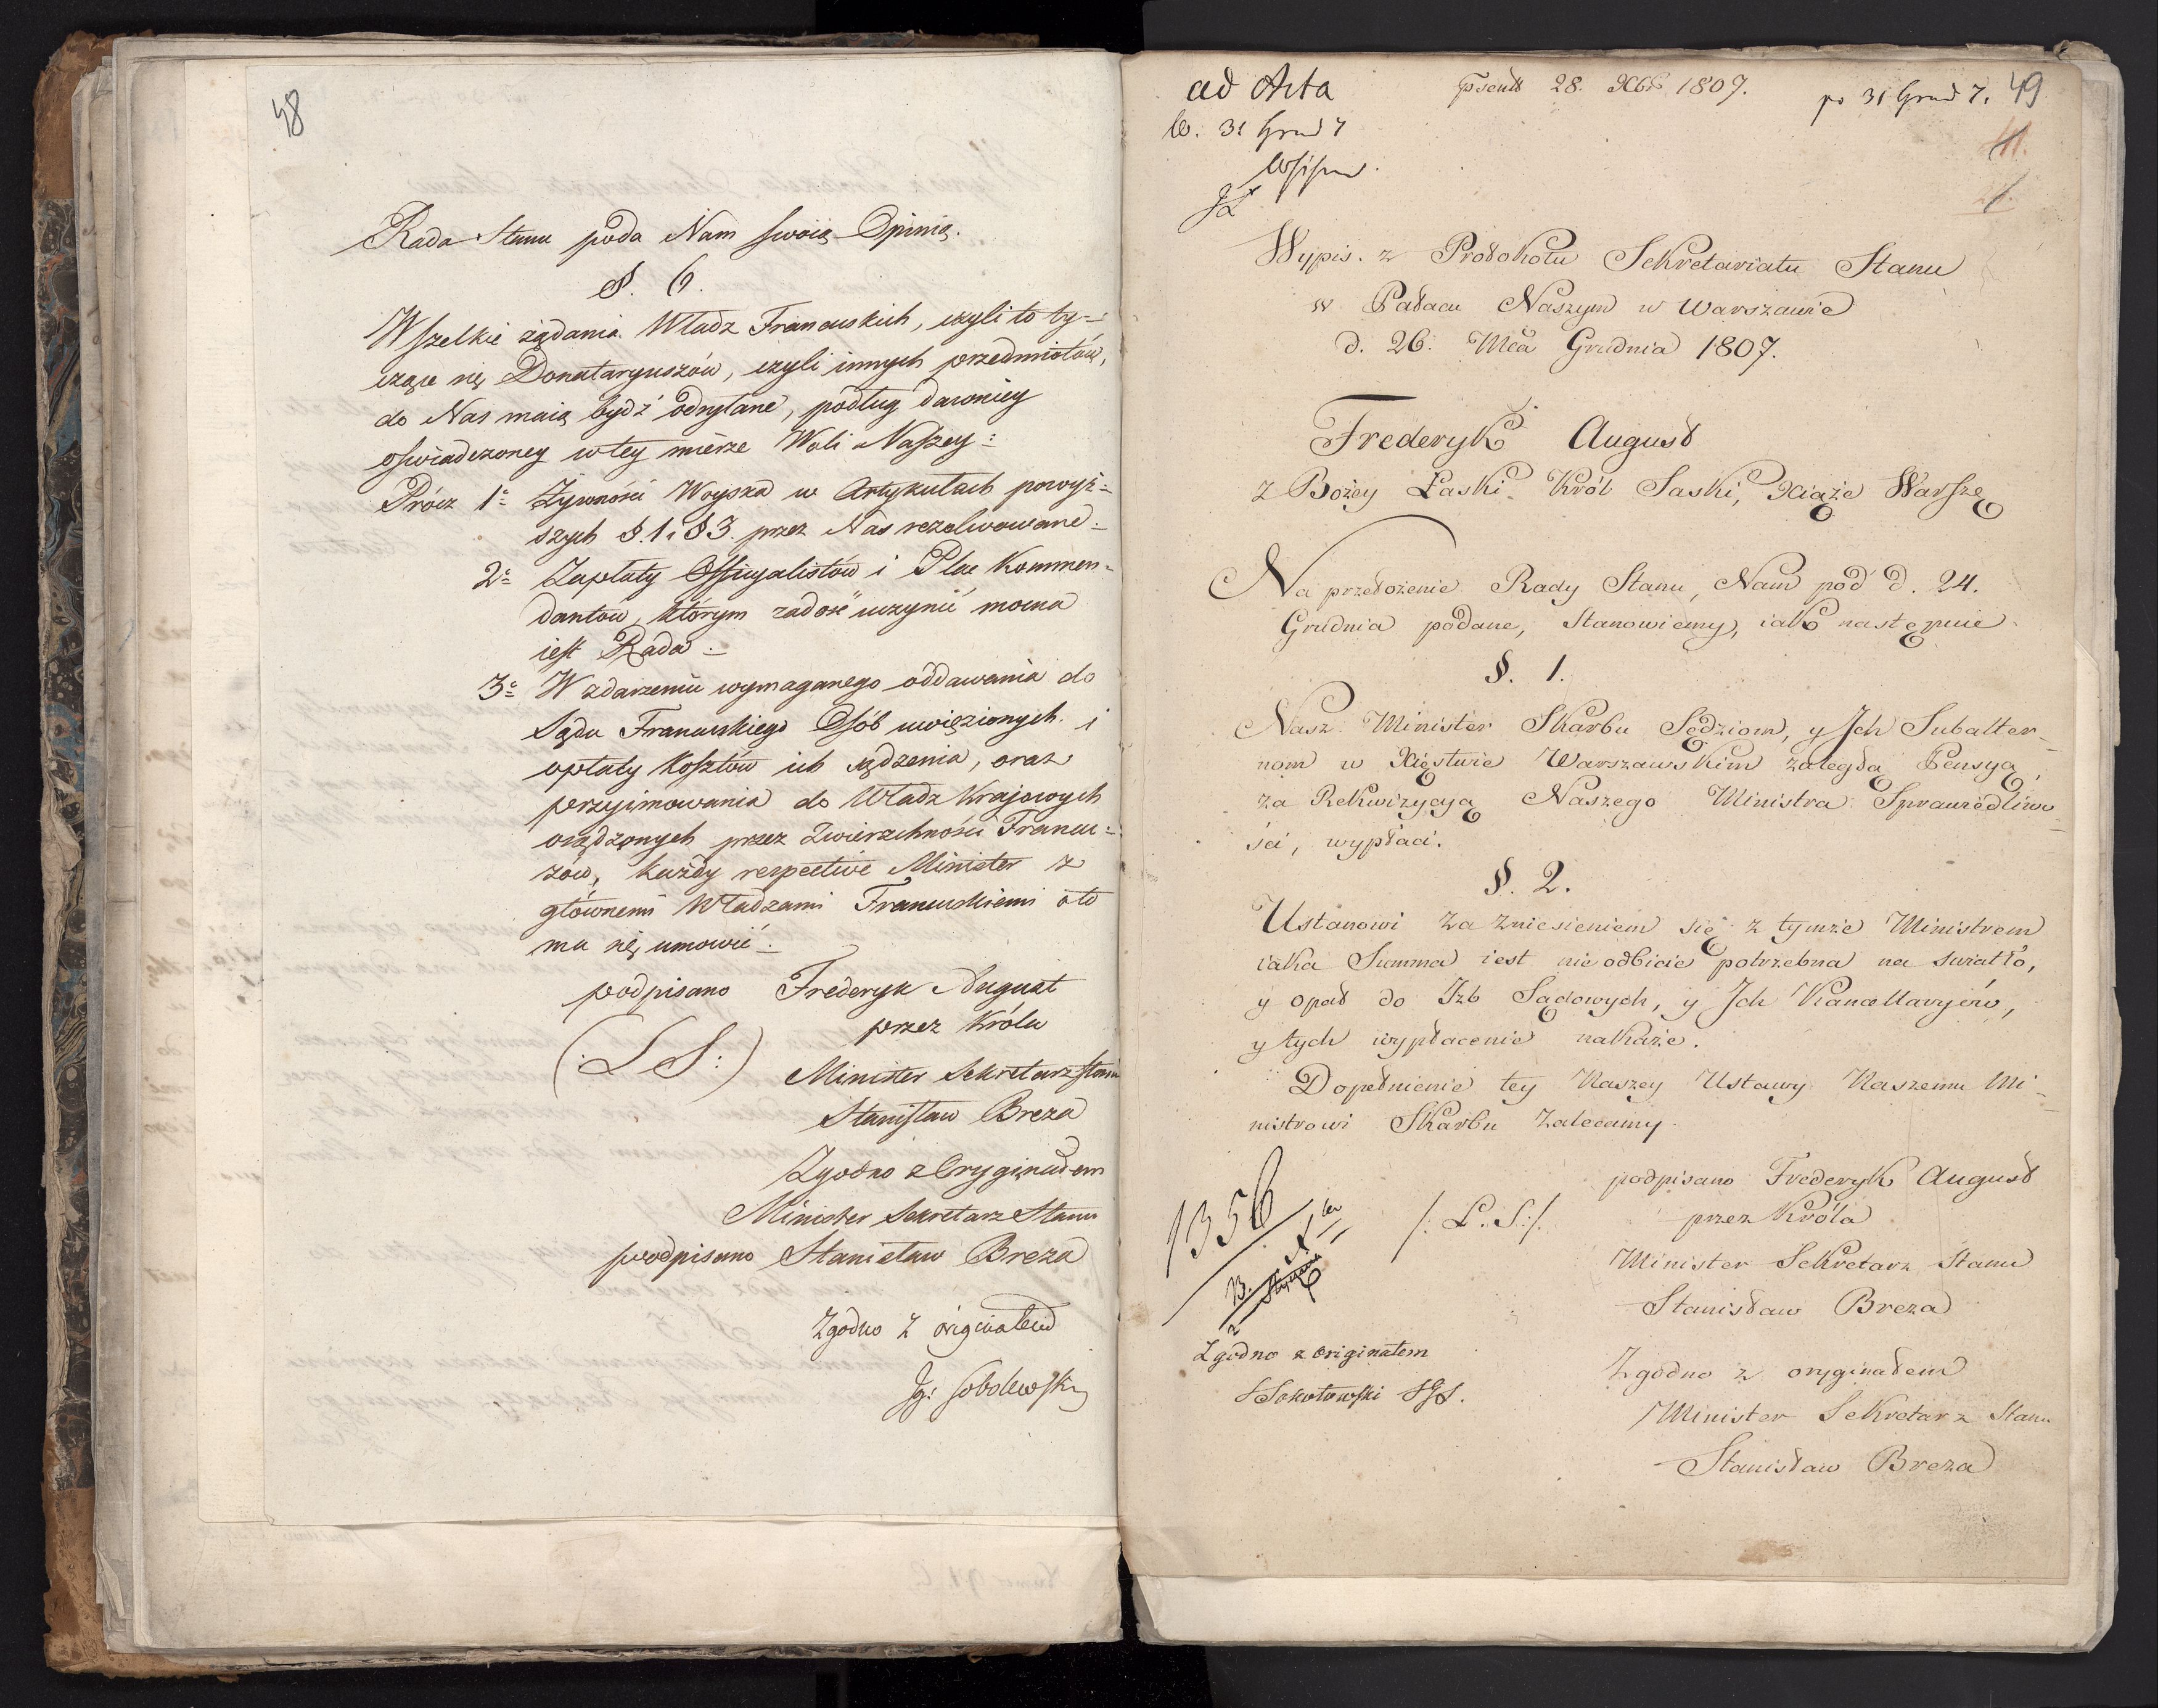 48
Rada Stanu poda Nam swoią Opinią.
§. 6.
Wszelkie żądania Władz Francuskich, czyli to ty-
czące się Donataryuszów, czyli innych przedmiotów,
do Nas maią bydź odsyłane, podług dawniey
oświadczoney w tey mierze Woli Naszey:
Prócz 1° Żywności Woyska w Artykułach powyż-
szych §. 1 i § 3. przez Nas rezolwowane.
2° Zapłaty Officyalistów i Plac Kommen-
dantów, którym zadość uczynić mocna
iest Rada.
3° W zdarzeniu wymaganego oddawania do
Sądu Francuskiego Osób uwięzionych i
opłaty kosztów ich sądzenia, oraz
przyimowania do Władz Krajowych
osądzonych przez Zwierzchności Francu-
zów, każdy respective Minister z
głównemi Władzami Francuskiemi o to
ma się umowić.
podpisano Frederyk August
przez Króla
(: L S :)
Minister Sekretarz Stanu
Stanisław Breza
Zgodno z Oryginałem
Minister Sekretarz Stanu
podpisano Stanisław Breza
Zgodno z originałem
Ig: Sobolewski
ad Acta
28. Xbr 1807.
po 31 Grud 7. 49
31 Grud 7
Wypis. z Protokołu Sekretariatu Stanu
w Pałacu Naszym w Warszawie
d. 26. Mca Grudnia 1807.
Frederyk August
z Bożey Łaski Król Saski, Xiąże Warsze
Na przełożenie Rady Stanu, Nam pod d. 24.
Grudnia podane, Stanowiemy, iak następuie
§. 1.
Nasz Minister Skarbu Sędziom, y Ich Subalter-
nom w Xięstwie Warszawskim zaległą Pensyą,
za Rekwizycyą Naszego Ministra Sprawiedliwo-
ści, wypłaci.
§. 2.
Ustanowi za zniesieniem się z tymże Ministrem
iaka Summa iest nieodbicie potrzebna na światło,
y opał do Izb Sądowych, y Ich Kancellaryiów,
y tych wypłacenie nakaże.
Dopełnienie tey Naszey Ustawy Naszemu Mi-
nistrowi Skarbu Zalecamy.
podpisano Frederyk August
przez Króla
/: L. S :/
Minister Sekretarz Stanu
Stanisław Breza
1356
Zgodno z originałem
Sokołowski
Zgodno z oryginałem
Minister Sekretarz Stanu
Stanisław Breza